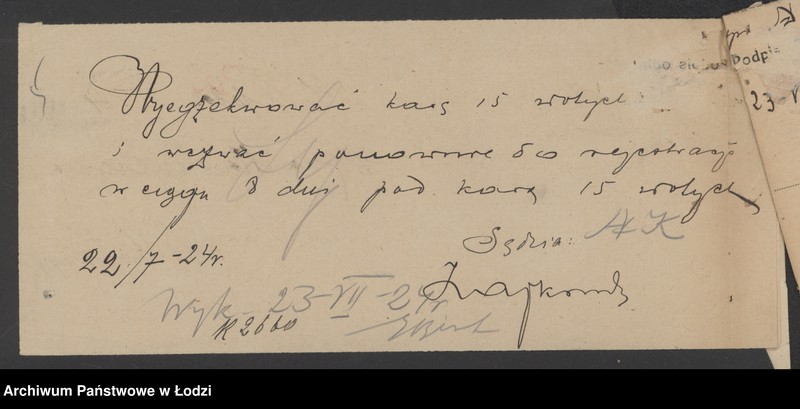 Wyegzekwować karę 15 złotych
i wezwać ponownie do rejestracji
w ciągu 8 dni pod karą 15 złotych
Sędzia: AK
22/7-24r.
Wyk. 23-VII-24r
K 2660
podpi
23-V
Archiwum Państwowe w Łodzi